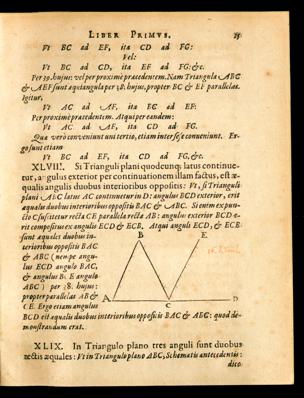 LIBER PRIMUS. 25
Vt BC ad EF, ita CD ad FG:
Vel:
Vt BC ad CD, ita EF ad FG: &c.
Per 39. hujus: vel per proximè præcedentem. Nam Triangula ABC
& AEF sunt æquiangula per 38. hujus, propter BC & EF parallelas.
Igitur,
Vt AC ad AF, ita BC ad EF:
Per proximè præcedentem. Atqui per eandem:
Vt AC ad AF, ita CD ad FG.
Quæ verò conveniunt uni tertio, etiam inter se conveniunt. Er-
go sunt etiam
Vt BC ad EF, ita CD ad FG, &c.
XLVIII. Si Trianguli plani quodcunq; latus continue-
tur, angulus exterior per continuationem illam factus, est æ-
qualis angulis duobus interioribus oppositis: Vt, si Trianguli
plani ABC latus AC continuetur in D: angulus BCD exterior, erit
æqualis duobus interioribus oppositis BAC & ABC. Si enim ex pun-
cto C suscitetur recta CE parallela rectæ AB: angulus exterior BCD e-
rit compositus ex angulis ECD & ECB. Atqui anguli ECD, & ECB
sunt æquales duobus in-
terioribus oppositis BAC
& ABC (nempe angu-
lus ECD angulo BAC,
& angulus BCE angulo
ABC) per 38. hujus:
propter parallelas AB &
CE. Ergo etiam angulus
B E
A C D
BCD est æqualis duobus interioribus oppositis BAC & ABC: quod de-
monstrandum erat.
XLIX. In Triangulo plano tres anguli sunt duobus
rectis æquales: Vt in Triangulo plano ABC, Schematis antecedentis:
dico